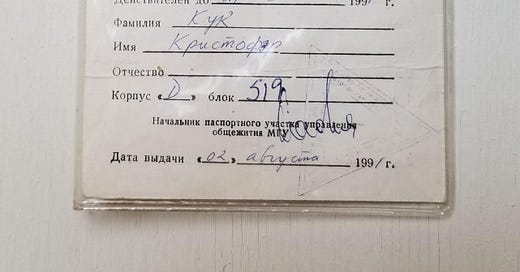 Действителен до 199 г.
Фамилия Кук
Имя Кристофер
Отчество
Корпус «D» блок 519
Начальник паспортного участка управления
общежития МГУ
Дата выдачи «02» августа 1991 г.